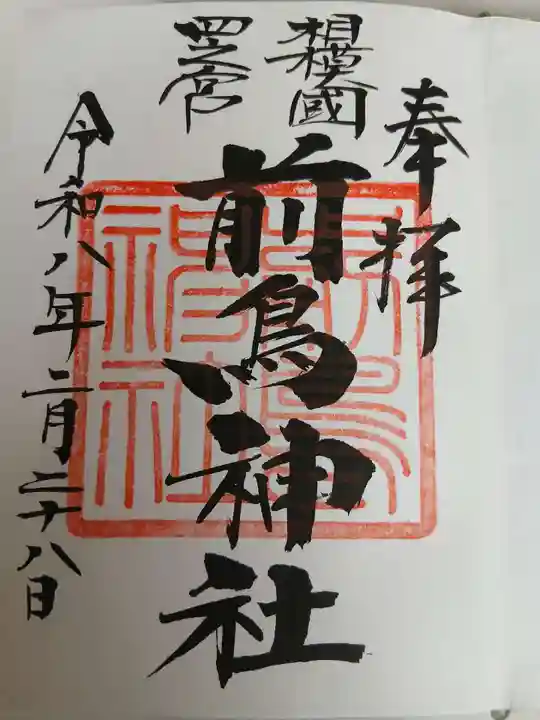 奉拝
相模國
四之宮
前鳥神社
令和八年二月二十八日
前鳥
神社